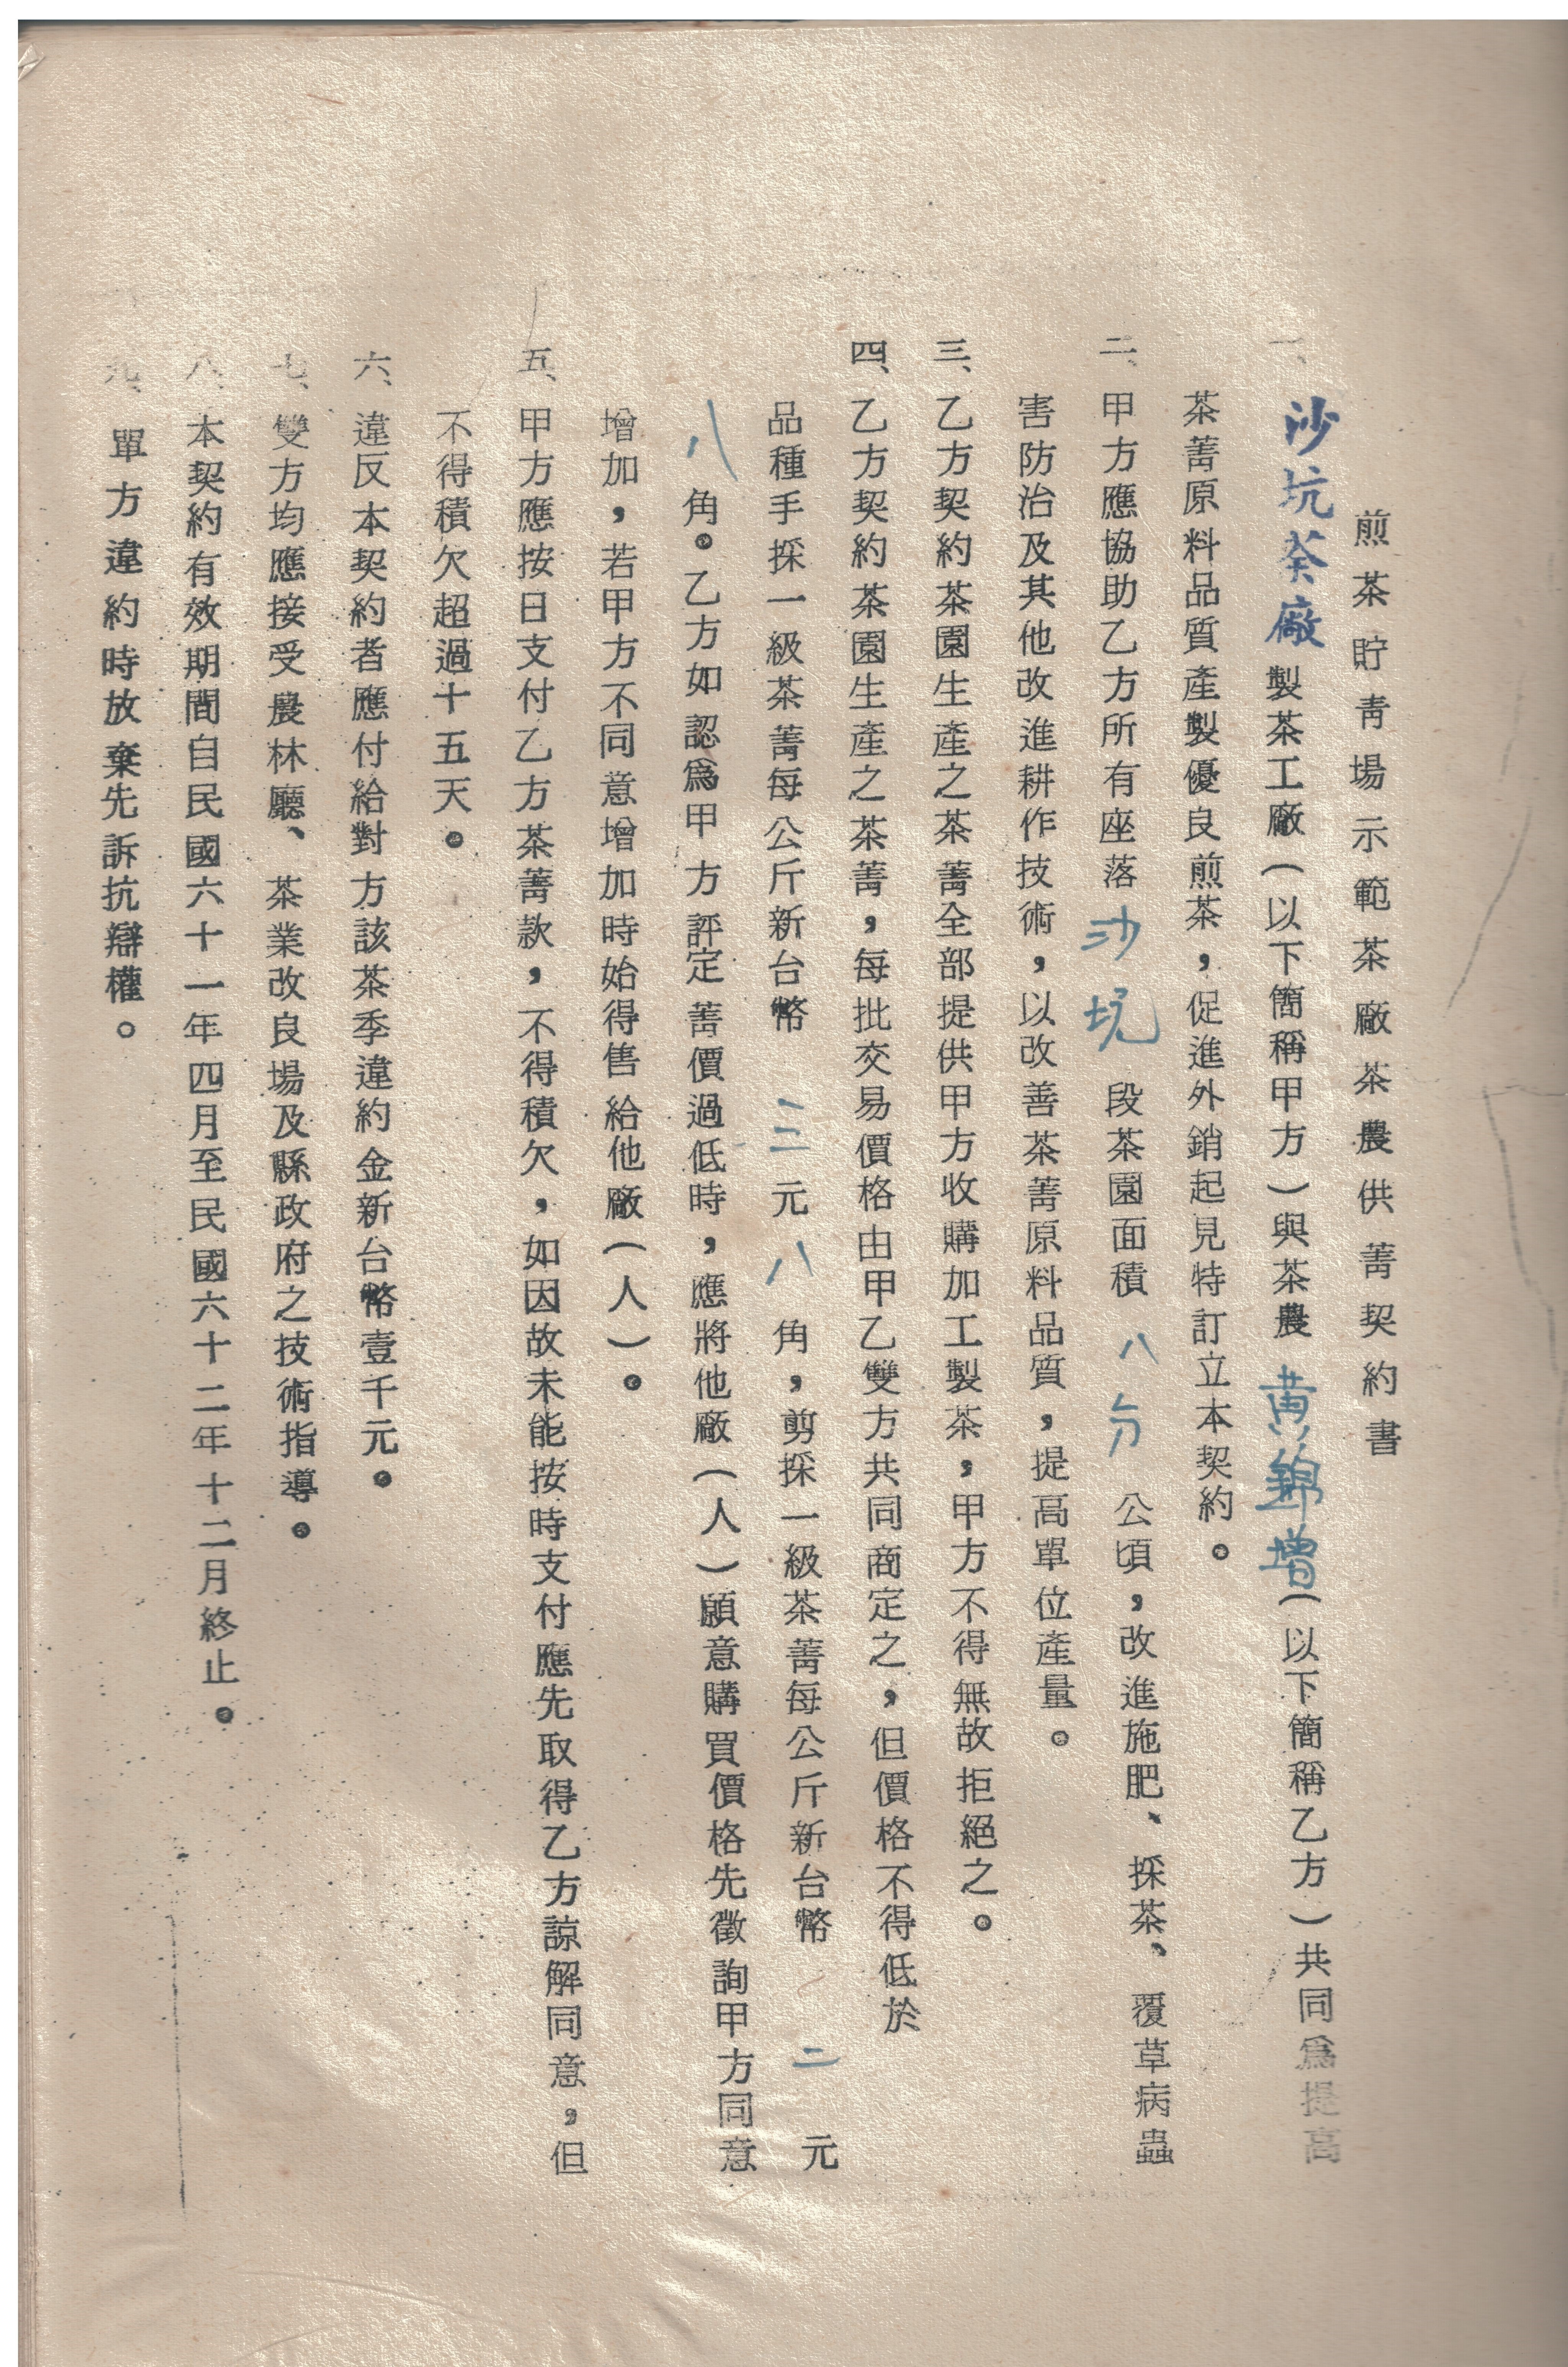 煎茶貯青場示範茶廠茶農供菁契約書
一、沙坑茶廠製茶工廠(以下簡稱甲方)與茶農黃錦增(以下簡稱乙方)共同為提高
茶菁原料品質產製優良煎茶,促進外銷起見特訂立本契約。
二、甲方應協助乙方所有座落沙坑段茶園面積八分公頃,改進施肥、採茶、覆草病蟲
害防治及其他改進耕作技術,以改善茶菁原料品質,提高單位產量。
三、乙方契約茶園生產之茶菁全部提供甲方收購加工製茶,甲方不得無故拒絕之。
四、乙方契約茶園生產之茶菁,每批交易價格由甲乙雙方共同商定之,但價格不得低於
品種手採一級茶菁每公斤新台幣三元八角,剪採一級茶菁每公斤新台幣二元
八角。乙方如認為甲方評定菁價過低時,應將他廠(人)願意購買價格先徵詢甲方同意
增加,若甲方不同意增加時始得售給他廠(人)。
五、甲方應按日支付乙方茶菁款,不得積欠,如因故未能按時支付應先取得乙方諒解同意,但
不得積欠超過十五天。
六、違反本契約者應付給對方該茶季違約金新台幣壹千元。
七、雙方均應接受農林廳、茶業改良場及縣政府之技術指導。
八、本契約有效期間自民國六十一年四月至民國六十二年十二月終止。
九、單方違約時放棄先訴抗辯權。